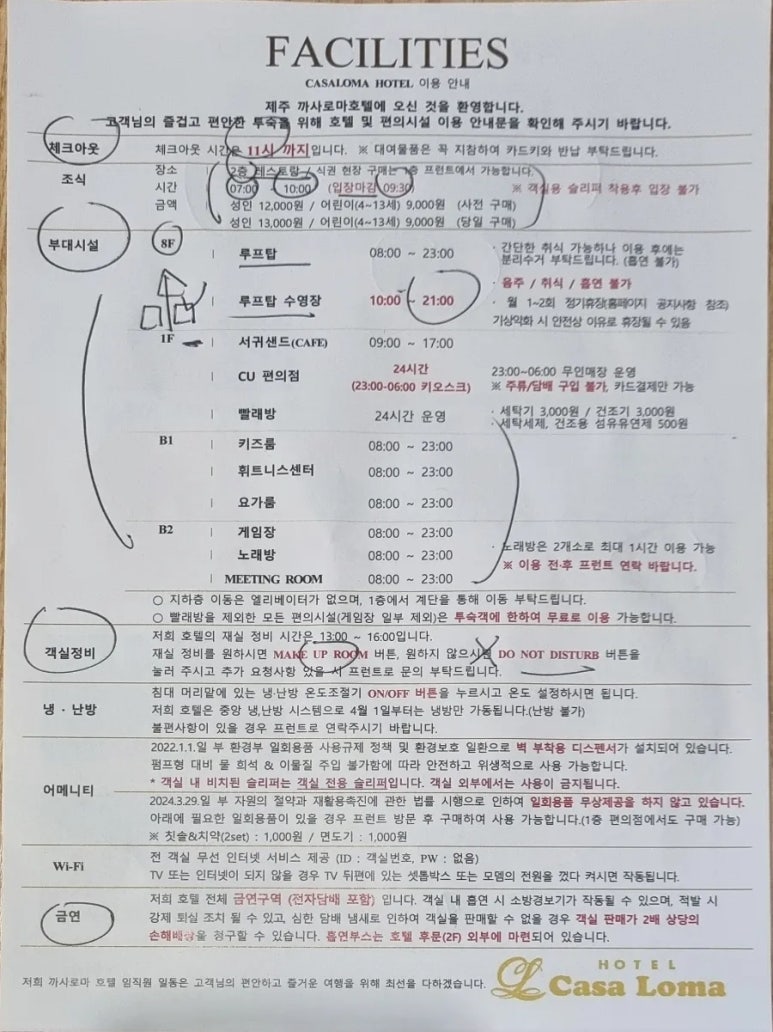 FACILITIES
CASALOMA HOTEL 이용 안내
제주 까사로마호텔에 오신 것을 환영합니다.
고객님의 즐겁고 편안한 투숙을 위해 호텔 및 편의시설 이용 안내문을 확인해 주시기 바랍니다.
체크아웃 체크아웃 시간은 11시 까지입니다. ※ 대여물품은 꼭 지참하여 카드키와 반납 부탁드립니다.
조식 장소 2층 레스토랑 / 식권 현장 구매는 1층 프런트에서 가능합니다.
시간 07:00 ~ 10:00 (입장마감 09:30) ※ 객실용 슬리퍼 착용후 입장 불가
금액 성인 12,000원 / 어린이(4~13세) 9,000원 (사전 구매)
성인 13,000원 / 어린이(4~13세) 9,000원 (당일 구매)
부대시설 8F | 루프탑 08:00 ~ 23:00 · 간단한 취식 가능하나 이용 후에는
분리수거 부탁드립니다. (흡연 불가)
| 루프탑 수영장 10:00 ~ 21:00 · 음주 / 취식 / 흡연 불가
· 월 1~2회 정기휴장(홈페이지 공지사항 참조)
기상악화 시 안전상 이유로 휴장될 수 있음
1F | 서귀샌드(CAFE) 09:00 ~ 17:00
| CU 편의점 24시간 23:00~06:00 무인매장 운영
(23:00-06:00 키오스크) ※ 주류/담배 구입 불가, 카드결제만 가능
| 빨래방 24시간 운영 · 세탁기 3,000원 / 건조기 3,000원
· 세탁세제, 건조용 섬유유연제 500원
B1 | 키즈룸 08:00 ~ 23:00
| 휘트니스센터 08:00 ~ 23:00
| 요가룸 08:00 ~ 23:00
B2 | 게임장 08:00 ~ 23:00
| 노래방 08:00 ~ 23:00 · 노래방은 2개소로 최대 1시간 이용 가능
※ 이용 전·후 프런트 연락 바랍니다.
| MEETING ROOM 08:00 ~ 23:00
○ 지하층 이동은 엘리베이터가 없으며, 1층에서 계단을 통해 이동 부탁드립니다.
○ 빨래방을 제외한 모든 편의시설(게임장 일부 제외)은 투숙객에 한하여 무료로 이용 가능합니다.
객실정비 저희 호텔의 재실 정비 시간은 13:00 ~ 16:00입니다.
재실 정비를 원하시면 MAKE UP ROOM 버튼, 원하지 않으시면 DO NOT DISTURB 버튼을
눌러 주시고 추가 요청사항 있을 시 프런트로 문의 부탁드립니다.
냉 · 난방 침대 머리맡에 있는 냉·난방 온도조절기 ON/OFF 버튼을 누르시고 온도 설정하시면 됩니다.
저희 호텔은 중앙 냉,난방 시스템으로 4월 1일부터는 냉방만 가동됩니다.(난방 불가)
불편사항이 있을 경우 프런트로 연락주시기 바랍니다.
어메니티 2022.1.1.일 부 환경부 일회용품 사용규제 정책 및 환경보호 일환으로 벽 부착용 디스펜서가 설치되어 있습니다.
펌프형 대비 물 희석 & 이물질 주입 불가함에 따라 안전하고 위생적으로 사용 가능합니다.
* 객실 내 비치된 슬리퍼는 객실 전용 슬리퍼입니다. 객실 외부에서는 사용이 금지됩니다.
2024.3.29.일 부 자원의 절약과 재활용촉진에 관한 법률 시행으로 인하여 일회용품 무상제공을 하지 않고 있습니다.
아래에 필요한 일회용품이 있을 경우 프런트 방문 후 구매하여 사용 가능합니다.(1층 편의점에서도 구매 가능)
※ 칫솔&치약(2set) : 1,000원 / 면도기 : 1,000원
Wi-Fi 전 객실 무선 인터넷 서비스 제공 (ID : 객실번호, PW : 없음)
TV 또는 인터넷이 되지 않을 경우 TV 뒤편에 있는 셋톱박스 또는 모뎀의 전원을 껐다 켜시면 작동됩니다.
금연 저희 호텔 전체 금연구역 (전자담배 포함) 입니다. 객실 내 흡연 시 소방경보기가 작동될 수 있으며, 적발 시
강제 퇴실 조치 될 수 있고, 심한 담배 냄새로 인하여 객실을 판매할 수 없을 경우 객실 판매가 2배 상당의
손해배상을 청구할 수 있습니다. 흡연부스는 호텔 후문(2F) 외부에 마련되어 있습니다.
저희 까사로마 호텔 임직원 일동은 고객님의 편안하고 즐거운 여행을 위해 최선을 다하겠습니다.
HOTEL
Casa Loma